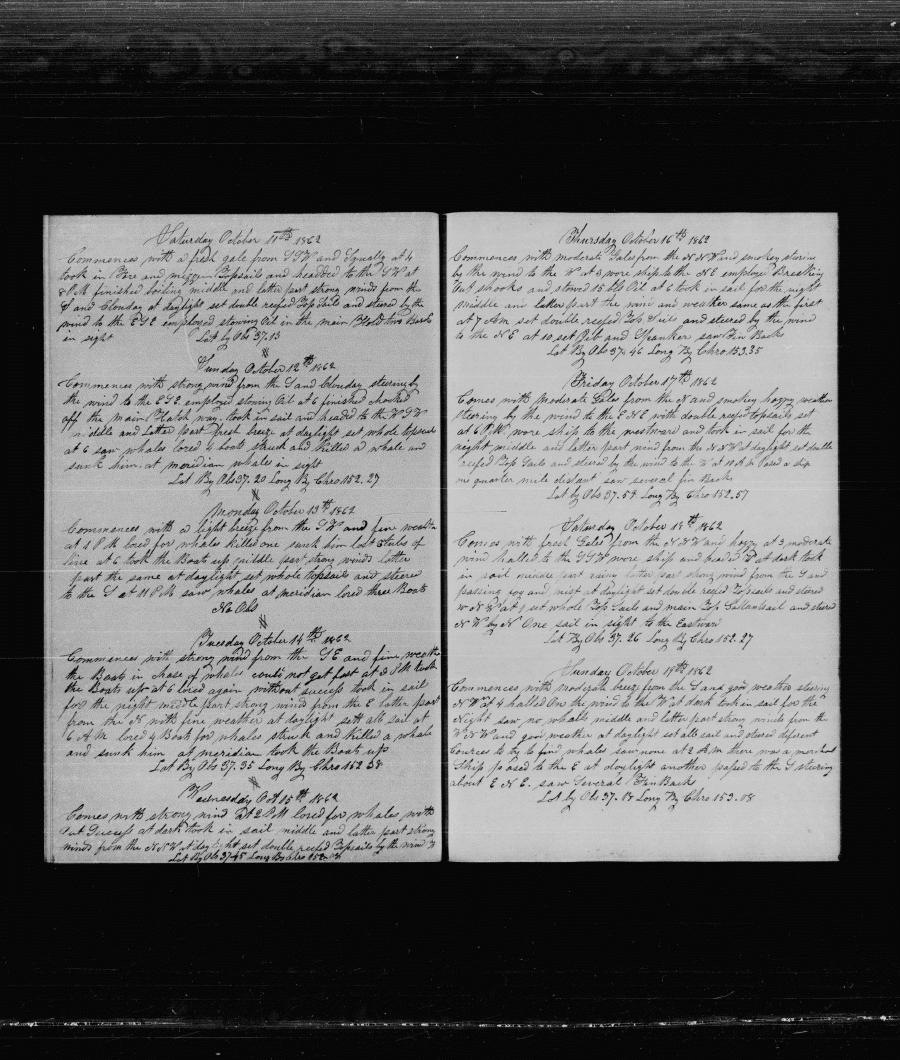 Saturday October 11th 1862
Commences with a fresh gale from SSW and Squally at 4
took in Fore and mizzen Topsails and headed to the SW at
8 PM finished boiling middle and latter part strong winds from the
S and Clouday at daylight set double reefed Top Sails and steered by the
wind to the ESE employed stowing Oil in the main Hold two Barks
in sight Lat by Obs 37.13
Sunday October 12th 1862
Commences with strong wind from the S and Clouday steering by
the wind to the ESE employed stowing Oil at 6 finished chocked
off the main Hatch way took in sail and headed to the WSW
middle and Latter part fresh breeze at daylight set whole topsails
at 6 saw whales lored 4 boats struck and killed a whale and
sunk him at meridian whales in sight
Lat By Obs 37.20 Long By Chro 152.27
Monday October 13th 1862
Commences with a light breeze from the SW and fine weather
at 1 PM lored for whales killed one sunk him lost 2 tubs of
line at 6 took the Boats up middle part strong winds latter
part the same at daylight set whole topsails and steered
to the S at 11 PM saw whales at meridian lored three Boats
No Obs
Tuesday October 14th 1862
Commences with strong wind from the SE and fine weather
the Boats in chase of whales could not get fast at 3 PM took
the Boats up at 5 lored again without success took in sail
for the night middle part strong winds from the E latter part
from the N with fine weather at daylight sett all sail at
6 AM lored 4 Boats for whales struck and killed a whale
and sunk him at meridian took the Boats up
Lat By Obs 37.35 Long By Chro 152.38
Wednesday Oct 15th 1862
Comes with strong wind at 2 PM lored for whales with
out Success at dark took in sail middle and latter part strong
winds from the NNW at daylight set double reefed Topsails by the wind
Lat By Obs 37.45 Long By Chro 152.
Thursday October 16th 1862
Commences with moderate Gales from the NNW and smokey steering
by the wind to the W at 3 wore ship to the NE employed Breaking
out shooks and stowed 15 bbs Oil at 6 took in sail for the night
Middle and latter part the wind and weather same as the first
at 7 AM set double reefed Top Sails and steered by the wind
to the NE at 10 set Jib and Spanker saw Fin Backs
Lat By Obs 37.46 Long By Chro 153.35
Friday October 17th 1862
Comes with moderate Gales from the N and smokey hazy weather
steering by the wind to the ENE with double reefed topsails set
at 6 PM wore ship to the westward and took in sail for the
night middle and latter part wind from the NNW at daylight set double
reefed Top Sails and steered by the wind to the W at 10 AM Passed a ship
one quarter mile distant saw several fin Backs
Lat by Obs 37.54 Long By Chro 152.57
Saturday October 18th 1862
Comes with fresh Gales from the NNW and hazy at 3 moderate
wind halled to the SSW wore ship and headed W at dark took
in sail middle part rainy latter part strong wind from the S and
passing fog and mist at daylight set double reefed Topsails and steered
WNW at 9 set whole Top Sails and main Top Gallantsail and steered
NW by N One sail in sight to the Eastward
Lat By Obs 37.26 Long By Chro 152.27
Sunday October 19th 1862
Commences with moderate breeze from the S and good weather steering
NW at 4 halled On the wind to the W at dark took in sail for the
Night saw no whales middle and latter part strong winds from the
WNW and good weather at daylight set all sail and steered diferent
Cources to try to find whales saw none at 2 AM there was a merchant
Ship passed to the E at daylight another passed to the S steering
about ENE. saw Several Fin Backs
Lat by Obs 37.08 Long By Chro 153.08